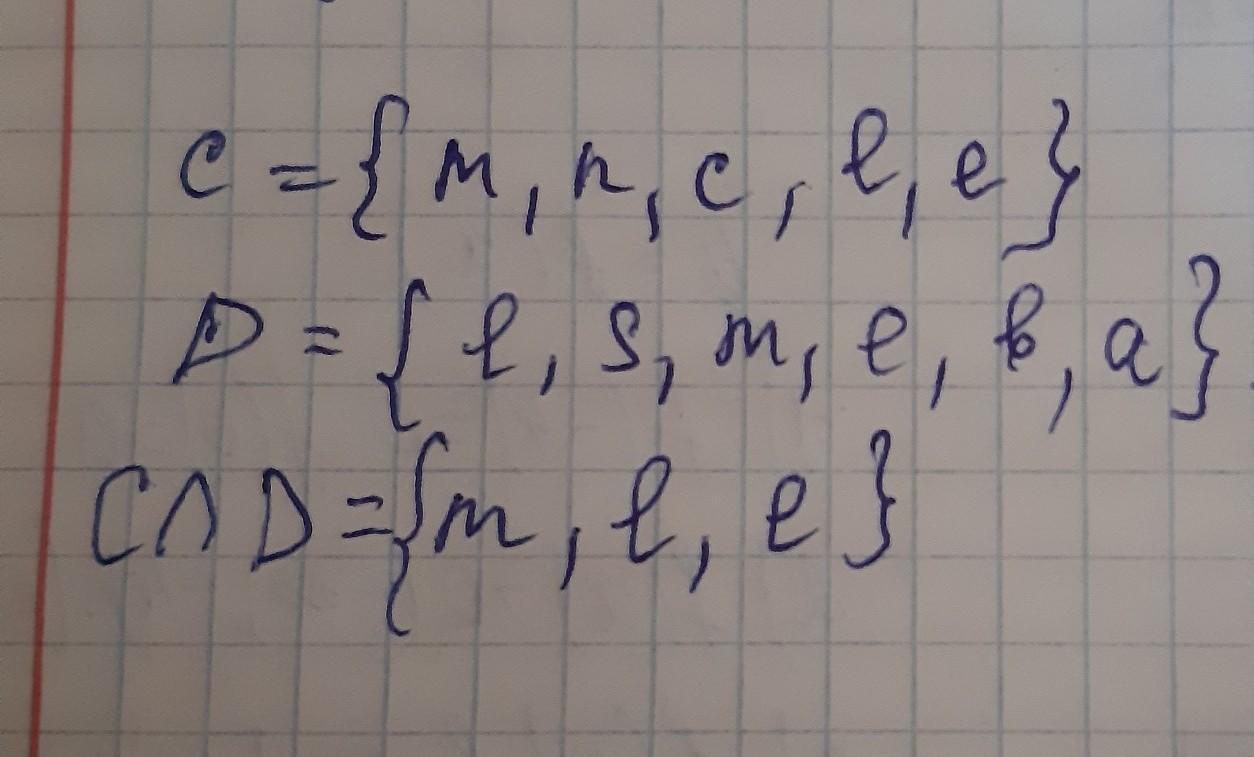 C = { m, n, c, l, e }
D = { l, s, m, e, b, a }
C ∩ D = { m, l, e }